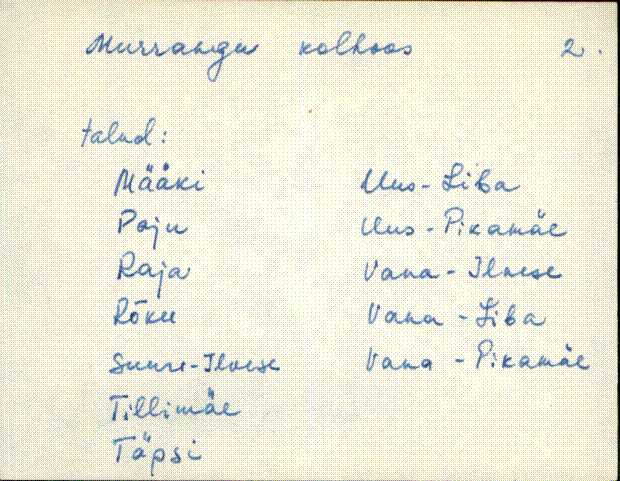 Murrangu kolhoos 2.
talud:
Määki
Paju
Raja
Rõku
Suure-Ilvese
Tillimäe
Täpsi
Uus-Liba
Uus-Pikamäe
Vana-Ilvese
Vana-Liba
Vana-Pikamäe